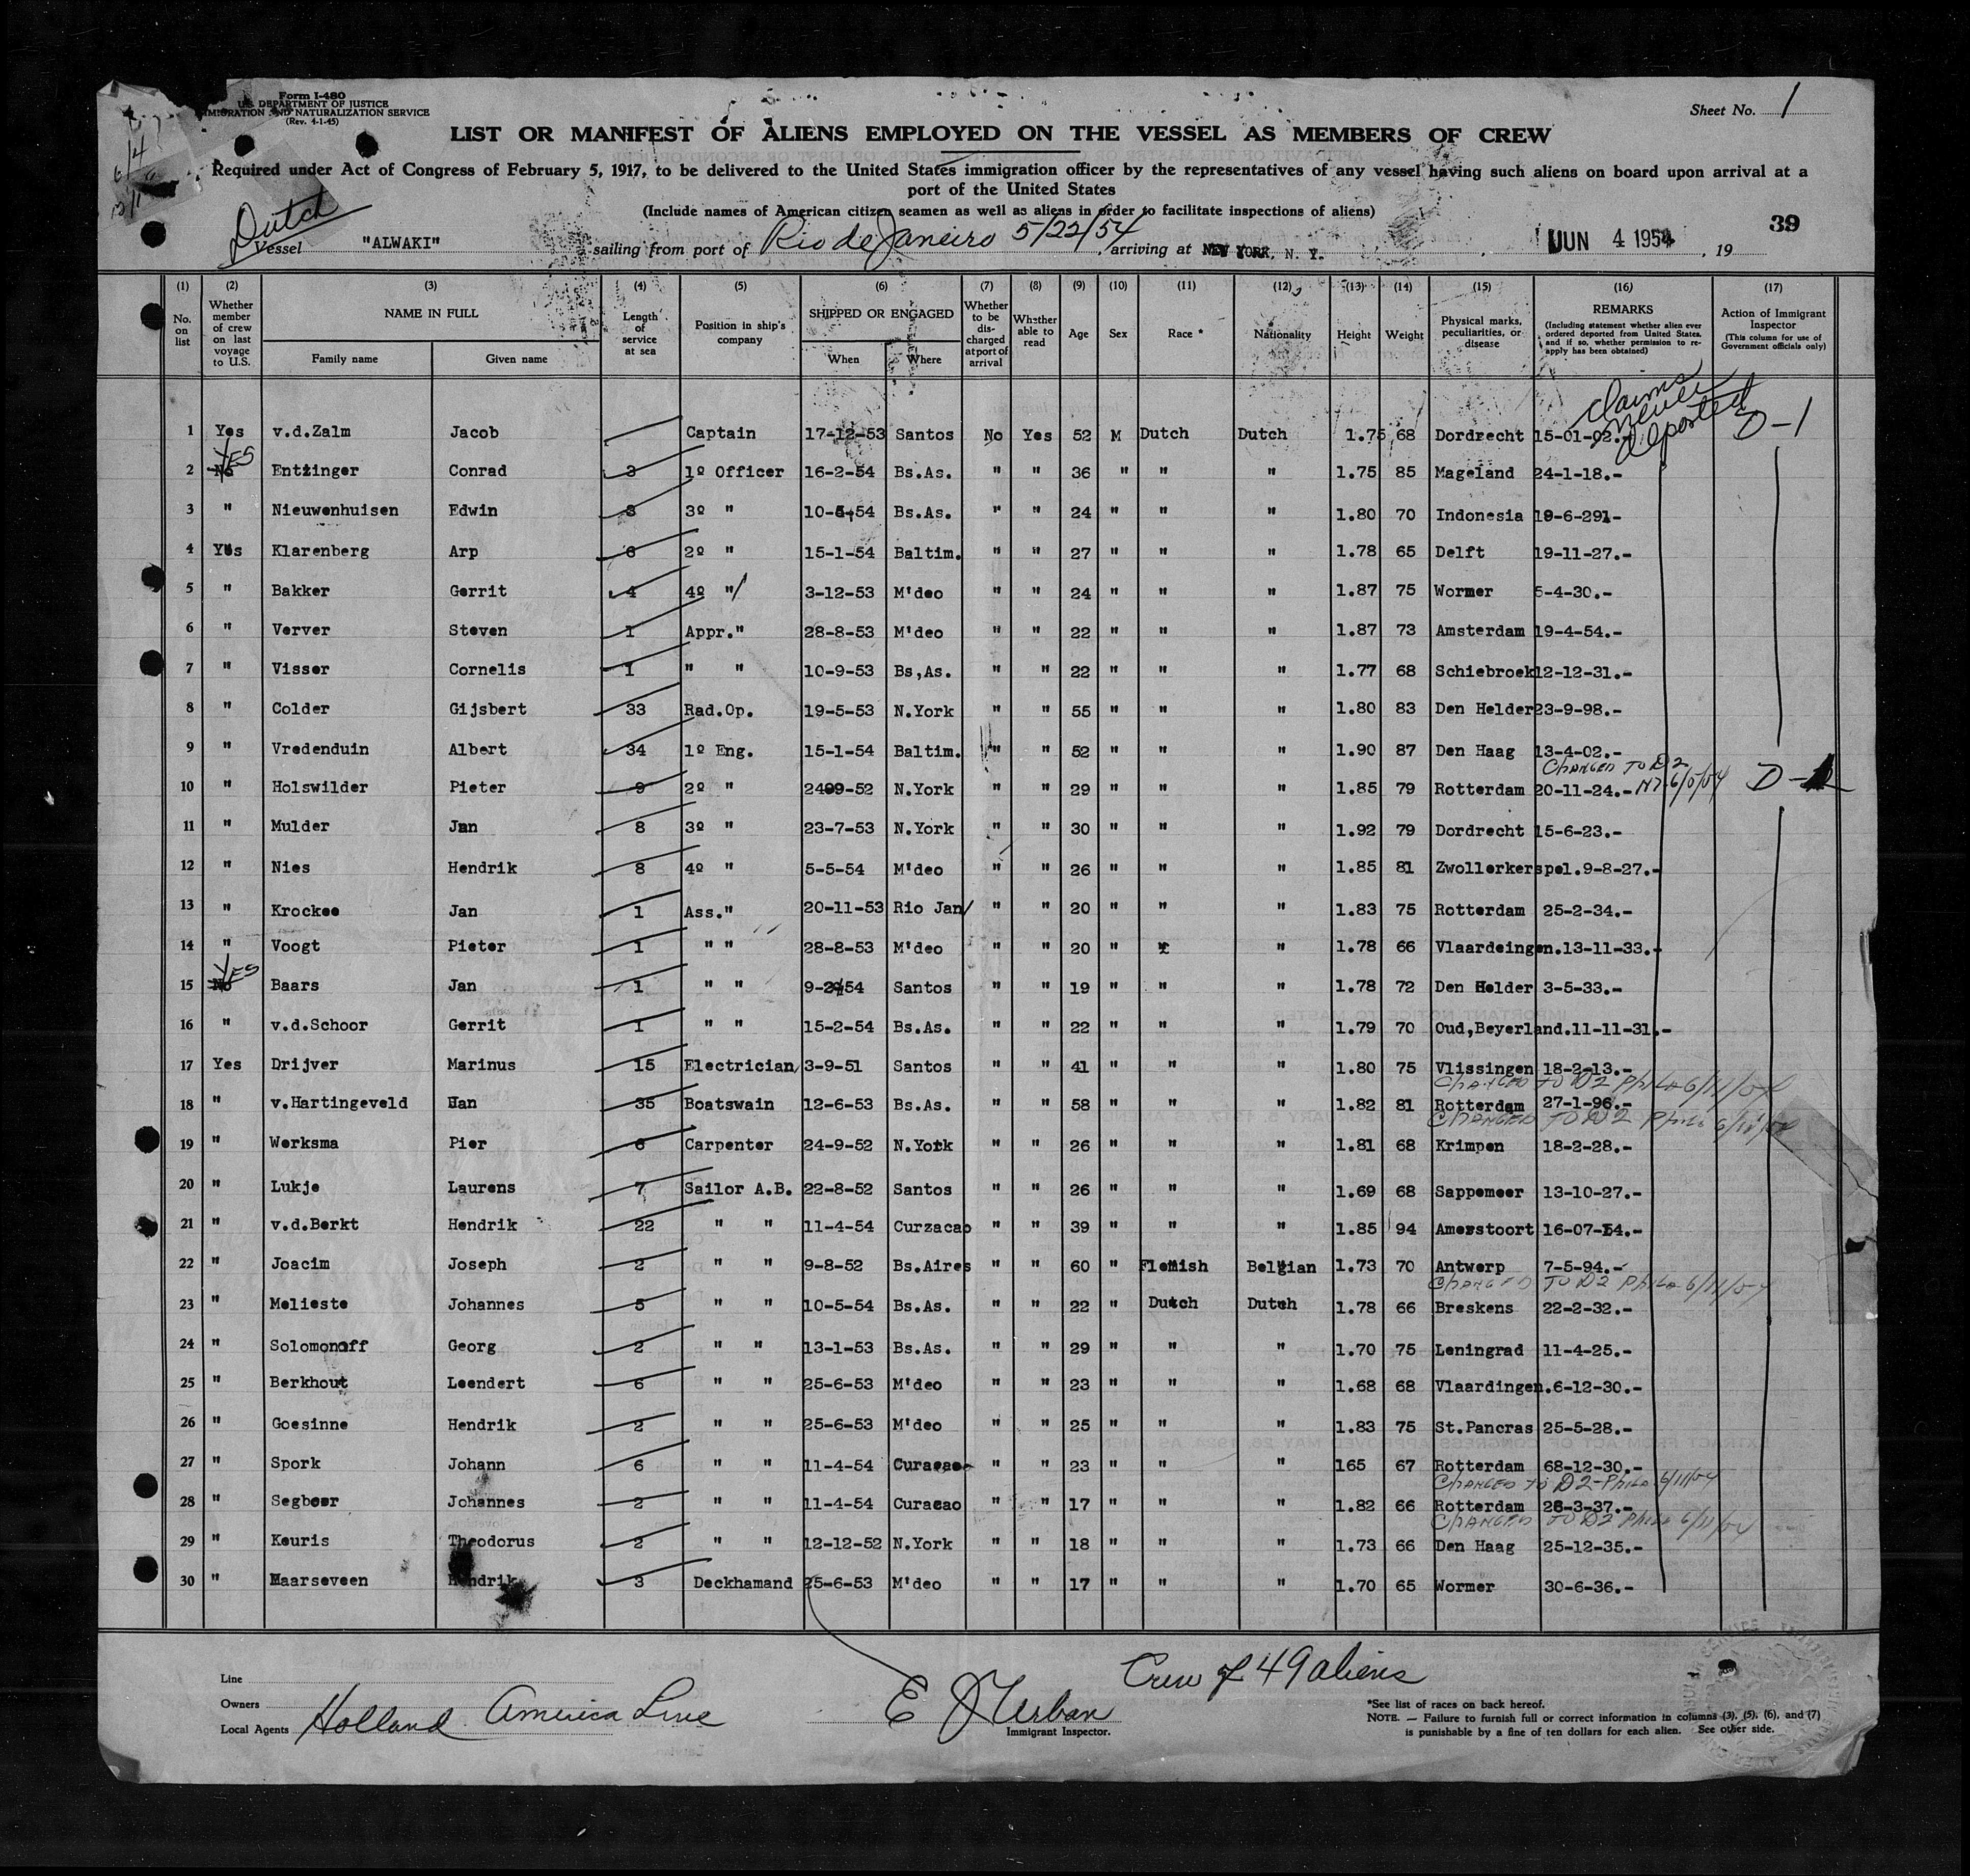 Form I-480
U.S. DEPARTMENT OF JUSTICE
IMMIGRATION AND NATURALIZATION SERVICE
(Rev. 4-1-45)
Sheet No. 1
LIST OR MANIFEST OF ALIENS EMPLOYED ON THE VESSEL AS MEMBERS OF CREW
Required under Act of Congress of February 5, 1917, to be delivered to the United States immigration officer by the representatives of any vessel having such aliens on board upon arrival at a
port of the United States
(Include names of American citizen seamen as well as aliens in order to facilitate inspections of aliens)
39
Dutch
Vessel "ALWAKI" sailing from port of Rio de Janeiro 5/22/54, arriving at NEW YORK, N. Y., JUN 4 1954, 19
(1) (2) (3) (4) (5) (6) (7) (8) (9) (10) (11) (12) (13) (14) (15) (16) (17)
No. on list Whether member of crew on last voyage to U.S. NAME IN FULL Family name Given name Length of service at sea Position in ship's company SHIPPED OR ENGAGED When Where Whether to be discharged at port of arrival Whether able to read Age Sex Race * Nationality Height Weight Physical marks, peculiarities, or disease REMARKS (Including statement whether alien ever ordered deported from United States, and if so, whether permission to re-apply has been obtained) Action of Immigrant Inspector (This column for use of Government officials only)
Claims never deported
1 Yes v.d.Zalm Jacob Captain 17-12-53 Santos No Yes 52 M Dutch Dutch 1.75 68 Dordrecht 15-01-02.- D-1
YES
2 No Entzinger Conrad 3 1º Officer 16-2-54 Bs.As. " " 36 " " " 1.75 85 Mageland 24-1-18.-
3 " Nieuwenhuisen Edwin 3 3º " 10-4-54 Bs.As. " " 24 " " " 1.80 70 Indonesia 19-6-291-
4 Yes Klarenberg Arp 6 2º " 15-1-54 Baltim. " " 27 " " " 1.78 65 Delft 19-11-27.-
5 " Bakker Gerrit 4 4º " 3-12-53 M'deo " " 24 " " " 1.87 75 Wormer 5-4-30.-
6 " Verver Steven 1 Appr." 28-8-53 M'deo " " 22 " " " 1.87 73 Amsterdam 19-4-54.-
7 " Visser Cornelis 1 " " 10-9-53 Bs,As. " " 22 " " " 1.77 68 Schiebroek 12-12-31.-
8 " Colder Gijsbert 33 Rad.Op. 19-5-53 N.York " " 55 " " " 1.80 83 Den Helder 23-9-98.-
9 " Vredenduin Albert 34 1º Eng. 15-1-54 Baltim. " " 52 " " " 1.90 87 Den Haag 13-4-02.-
CHANGED TO D2
10 " Holswilder Pieter 9 2º " 2409-52 N.York " " 29 " " " 1.85 79 Rotterdam 20-11-24.- D-
11 " Mulder Jan 8 3º " 23-7-53 N.York " " 30 " " " 1.92 79 Dordrecht 15-6-23.-
12 " Nies Hendrik 8 4º " 5-5-54 M'deo " " 26 " " " 1.85 81 Zwollerkerspel.9-8-27.-
13 " Krockee Jan 1 Ass." 20-11-53 Rio Jan " " 20 " " " 1.83 75 Rotterdam 25-2-34.-
14 " Voogt Pieter 1 " " 28-8-53 M'deo " " 20 " " " 1.78 66 Vlaardeingen.13-11-33.-
YES
15 No Baars Jan 1 " " 9-2-54 Santos " " 19 " " " 1.78 72 Den Helder 3-5-33.-
16 " v.d.Schoor Gerrit 1 " " 15-2-54 Bs.As. " " 22 " " " 1.79 70 Oud,Beyerland.11-11-31.-
17 Yes Drijver Marinus 15 Electrician 3-9-51 Santos " " 41 " " " 1.80 75 Vlissingen 18-2-13.-
CHANGED TO D2 Phila 6/11/54
18 " v.Hartingeveld Han 35 Boatswain 12-6-53 Bs.As. " " 58 " " " 1.82 81 Rotterdam 27-1-96.-
CHANGED TO D2 Phila 6/11/54
19 " Werksma Pier 6 Carpenter 24-9-52 N.York " " 26 " " " 1.81 68 Krimpen 18-2-28.-
20 " Lukje Laurens 7 Sailor A.B. 22-8-52 Santos " " 26 " " " 1.69 68 Sappemeer 13-10-27.-
21 " v.d.Berkt Hendrik 22 " " 11-4-54 Curzacao " " 39 " " " 1.85 94 Amerstoort 16-07-14.-
22 " Joacim Joseph 2 " " 9-8-52 Bs.Aires " " 60 " Flemish Belgian 1.73 70 Antwerp 7-5-94.-
CHANGED TO D2 Phila 6/11/54
23 " Melieste Johannes 5 " " 10-5-54 Bs.As. " " 22 " Dutch Dutch 1.78 66 Breskens 22-2-32.-
24 " Solomonoff Georg 2 " " 13-1-53 Bs.As. " " 29 " " " 1.70 75 Leningrad 11-4-25.-
25 " Berkhout Leendert 6 " " 25-6-53 M'deo " " 23 " " " 1.68 68 Vlaardingen.6-12-30.-
26 " Goesinne Hendrik 2 " " 25-6-53 M'deo " " 25 " " " 1.83 75 St.Pancras 25-5-28.-
27 " Spork Johann 6 " " 11-4-54 Curacao " " 23 " " " 165 67 Rotterdam 68-12-30.-
CHANGED TO D2-Phila 6/11/54
28 " Segboer Johannes 2 " " 11-4-54 Curacao " " 17 " " " 1.82 66 Rotterdam 26-3-37.-
CHANGED TO D2 Phila 6/11/54
29 " Keuris Theodorus 2 " " 12-12-52 N.York " " 18 " " " 1.73 66 Den Haag 25-12-35.-
30 " Haarseveen Hendrik 3 Deckhamand 25-6-53 M'deo " " 17 " " " 1.70 65 Wormer 30-6-36.-
Crew of 49 aliens
Line
Owners
Local Agents Holland America Line
E J Urban
Immigrant Inspector.
*See list of races on back hereof.
NOTE. — Failure to furnish full or correct information in columns (3), (5), (6), and (7)
is punishable by a fine of ten dollars for each alien. See other side.